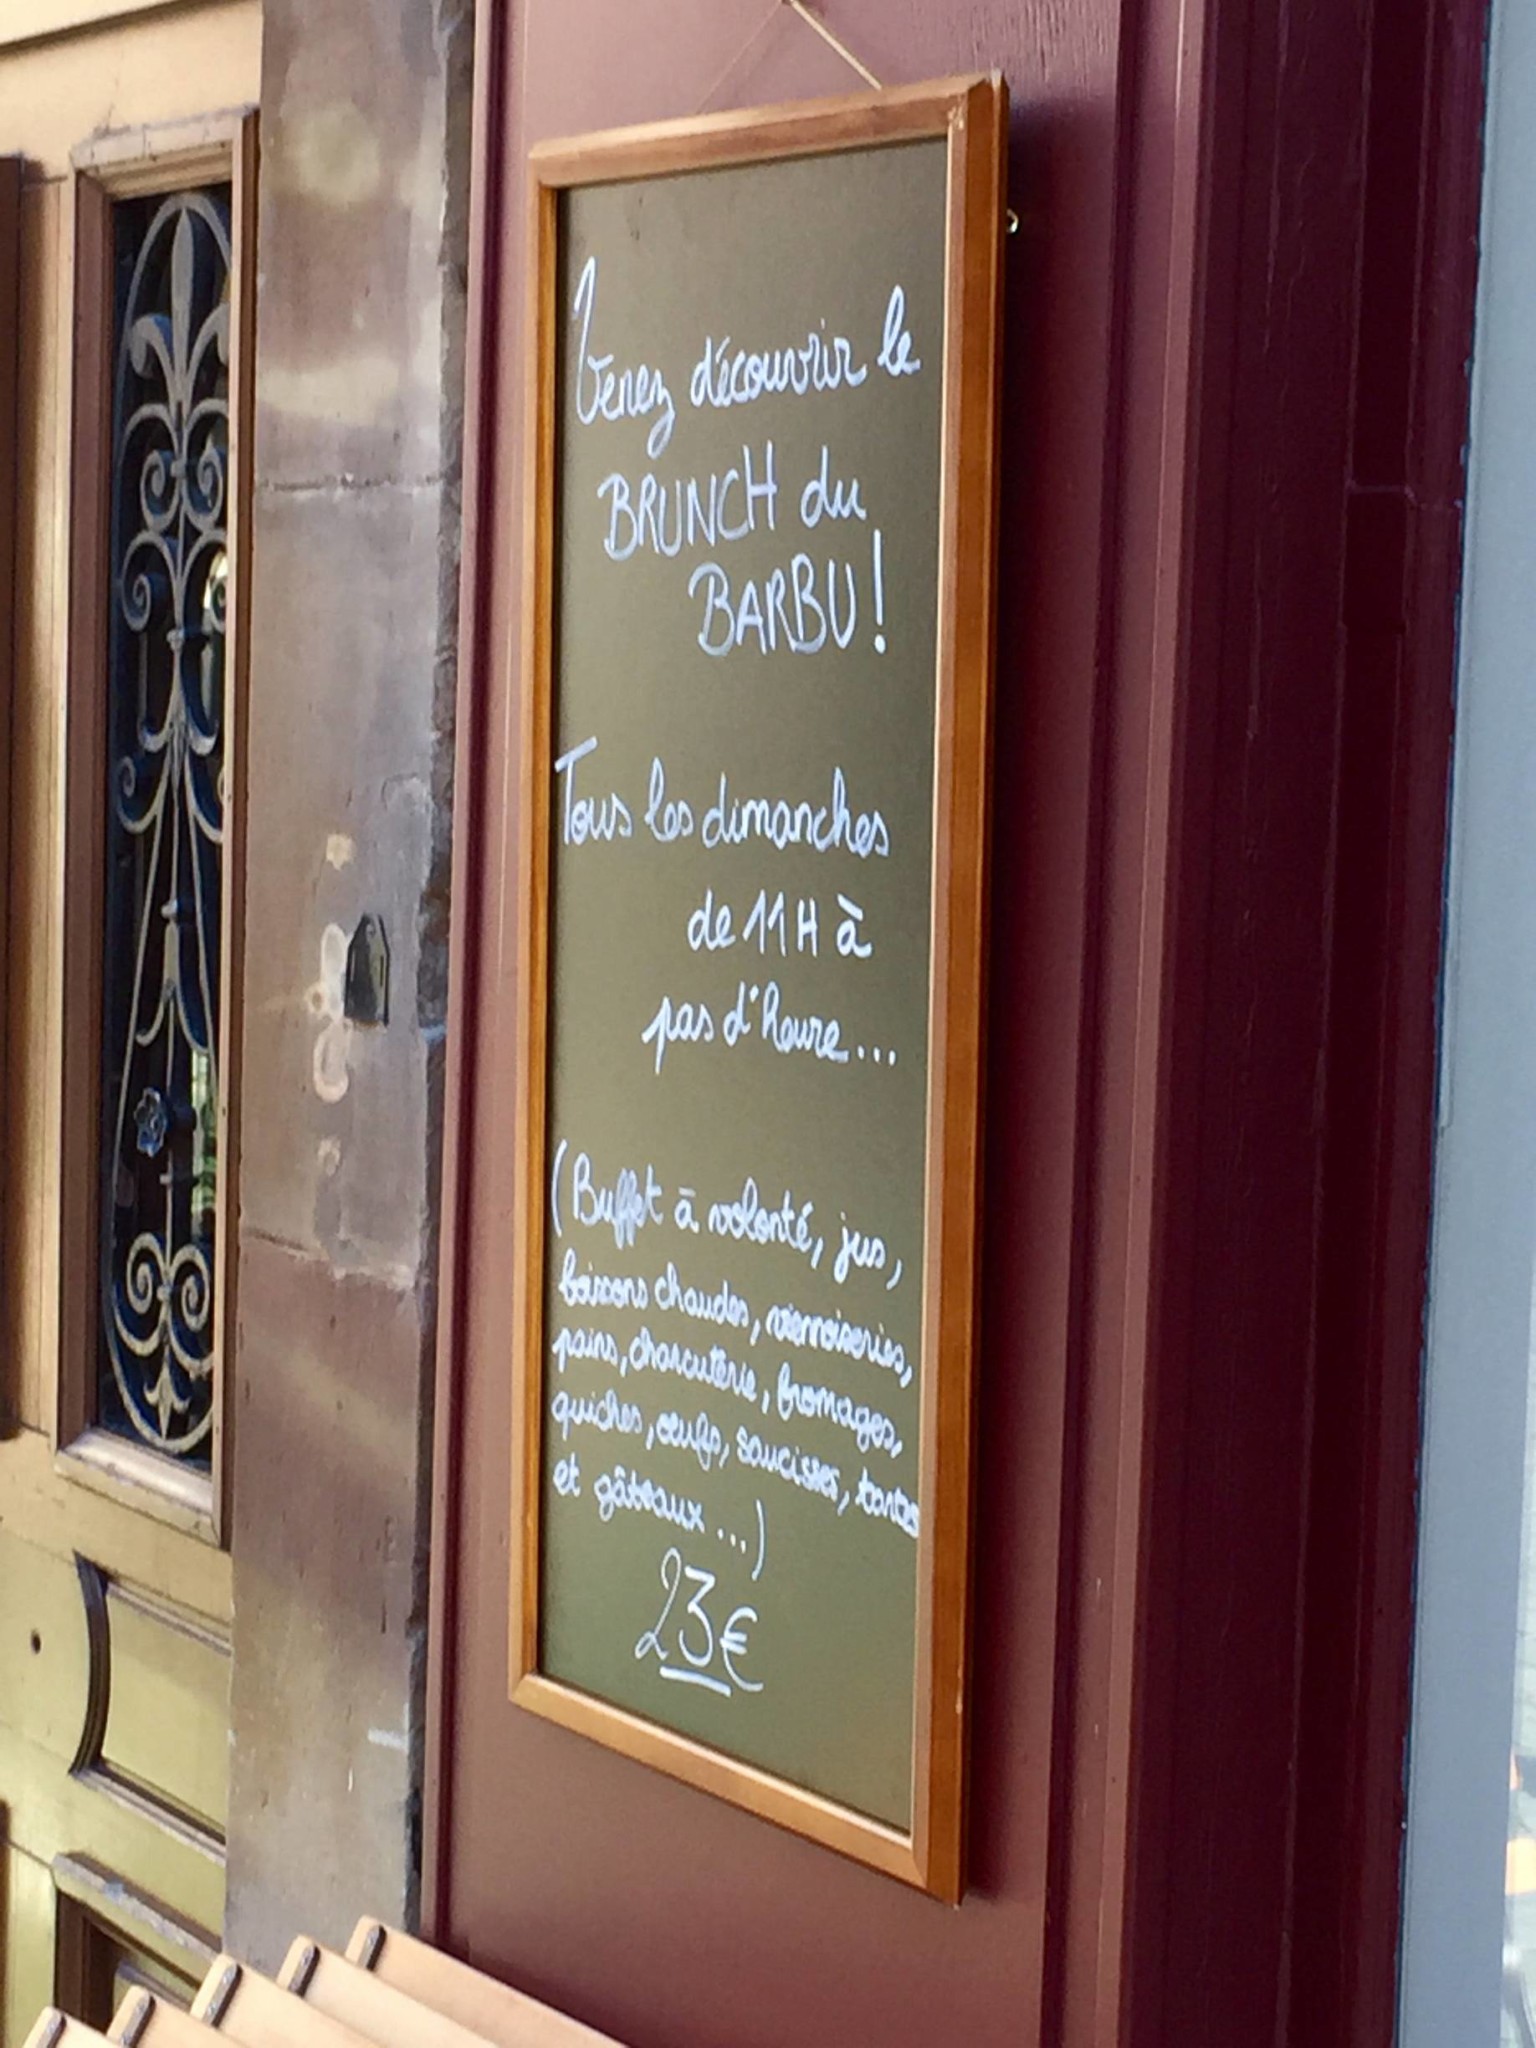 Venez découvrir le
BRUNCH du
BARBU!
Tous les dimanches
de 11H à
pas d'heure...
(Buffet à volonté, jus,
boissons chaudes, viennoiseries,
pains, charcuterie, fromages,
quiches, oeufs, saucisses, tartes
et gâteaux...)
23€